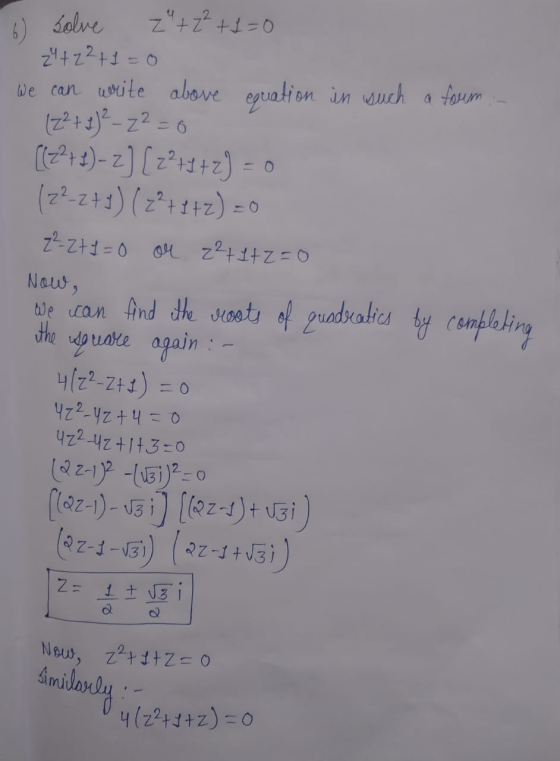 6) Solve z⁴+z²+1=0
z⁴+z²+1=0
We can write above equation in such a form :-
(z²+1)²-z²=0
[(z²+1)-z] [z²+1+z) = 0
(z²-z+1) (z²+1+z)=0
z²-z+1=0 or z²+1+z=0
Now,
We can find the roots of quadratics by completing
the square again :-
4(z²-z+1) = 0
4z²-4z+4=0
4z²-4z+1+3=0
(2z-1)² -(√3i)²=0
[(2z-1)-√3i] [(2z-1)+√3i)
(2z-1-√3i) (2z-1+√3i)
z= 1/2 ± √3/2 i
Now, z²+1+z=0
Similarly :-
4(z²+1+z)=0